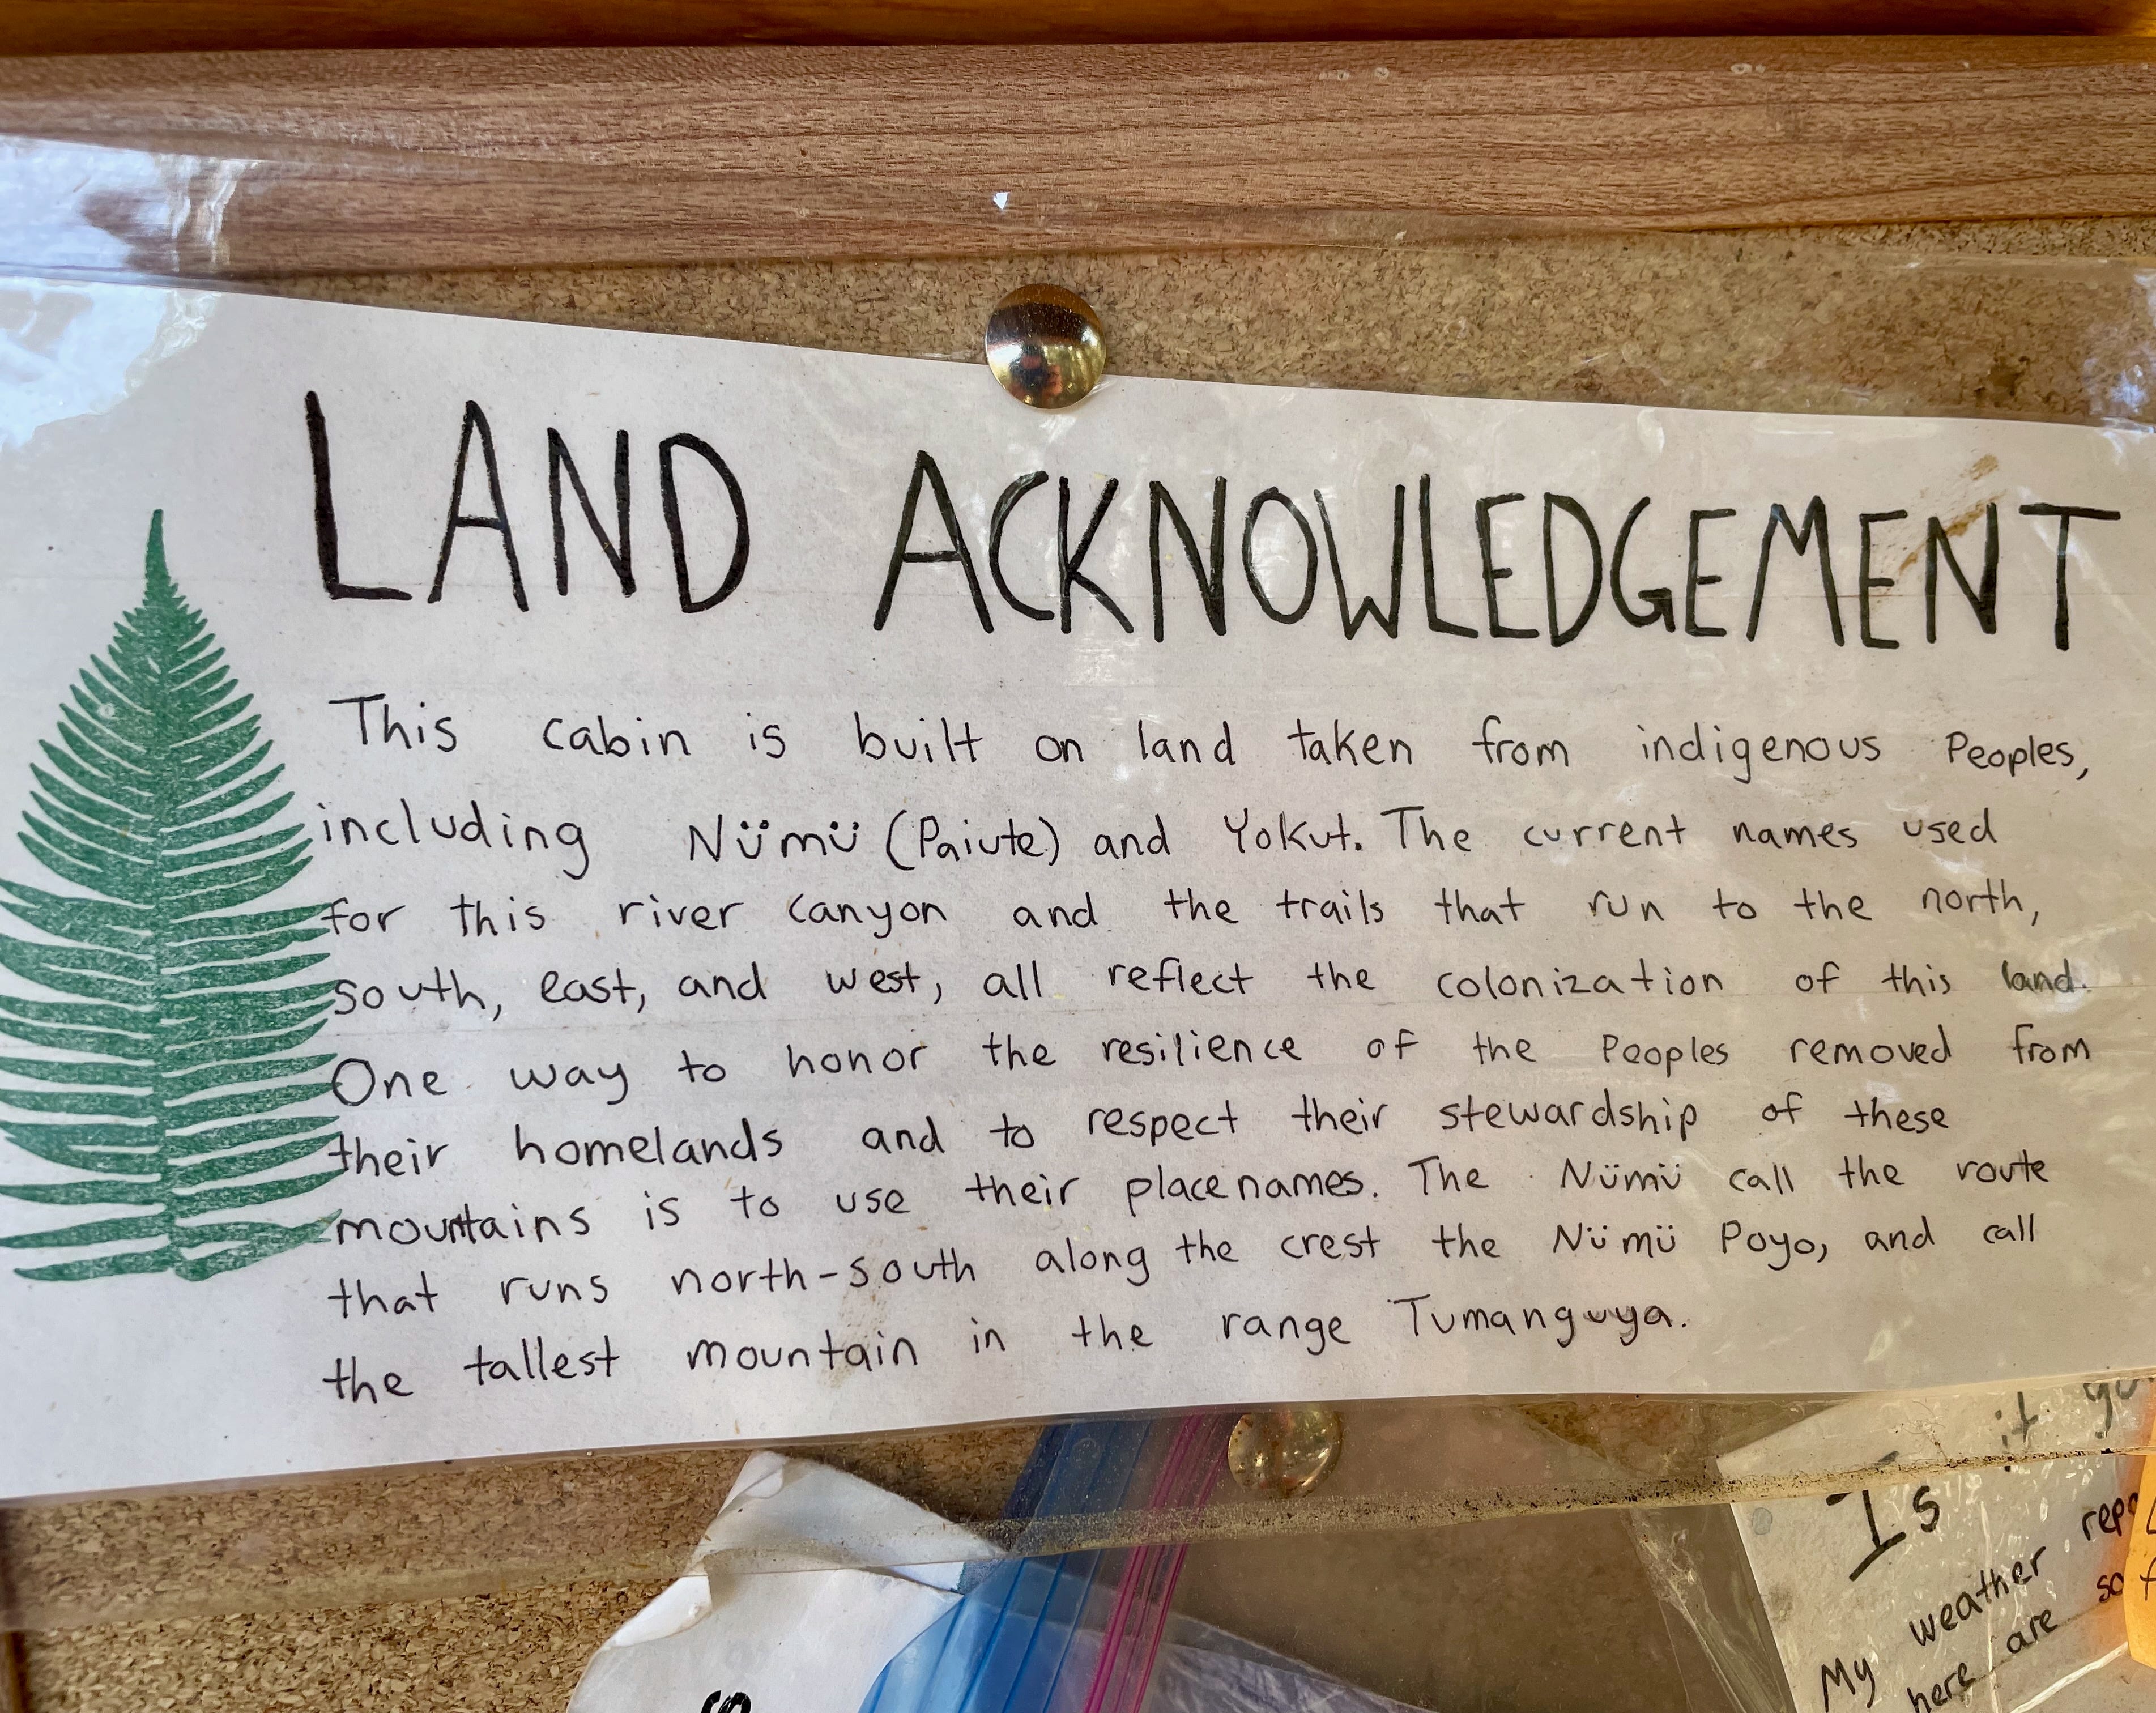 LAND ACKNOWLEDGEMENT
This cabin is built on land taken from indigenous Peoples,
including Nümü (Paiute) and Yokut. The current names used
for this river canyon and the trails that run to the north,
south, east, and west, all reflect the colonization of this land.
One way to honor the resilience of the Peoples removed from
their homelands and to respect their stewardship of these
mountains is to use their placenames. The Nümü call the route
that runs north-south along the crest the Nümü Poyo, and call
the tallest mountain in the range Tumanguya.
it
Is
My weather
here are so
S